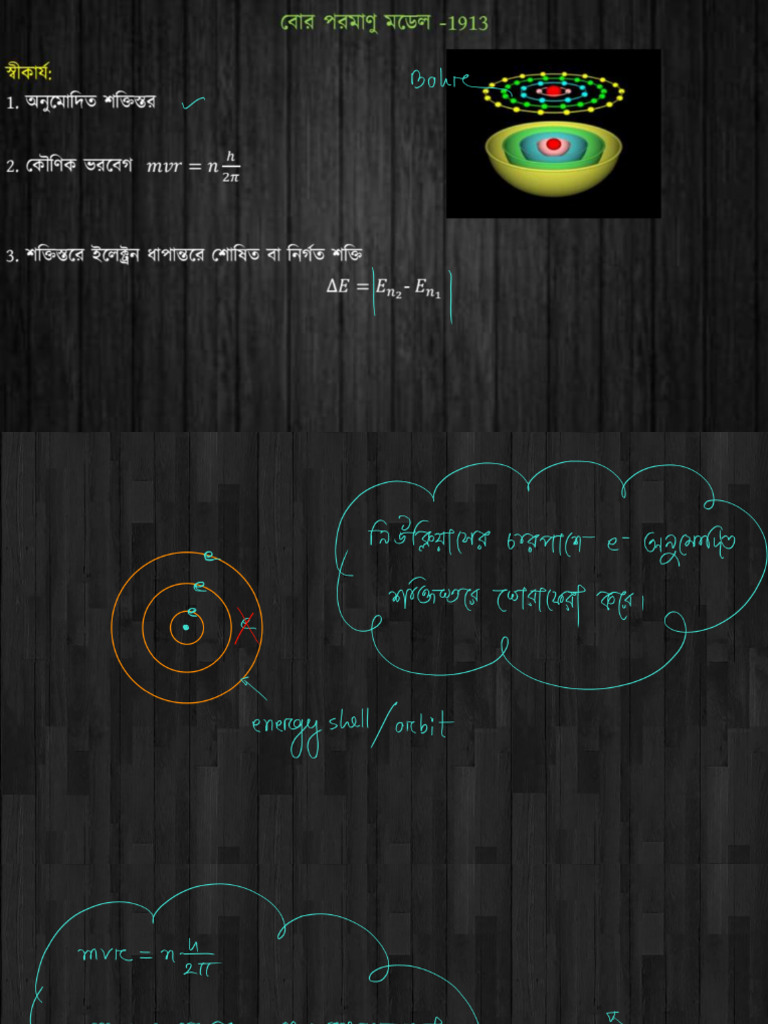 বোর পরমাণু মডেল -1913
স্বীকার্য:
Bohre
1. অনুমোদিত শক্তিস্তর
2. কৌণিক ভরবেগ mvr = n h/2π
3. শক্তিস্তরে ইলেক্ট্রন ধাপান্তরে শোষিত বা নির্গত শক্তি
ΔE = |E_{n_2} - E_{n_1}|
নিউক্লিয়াসের চারপাশে e- অনুমোদিত
শক্তিস্তরে ঘোরাফেরা করে।
e
e
e
e
energy shell/orbit
mvr = n h/2π